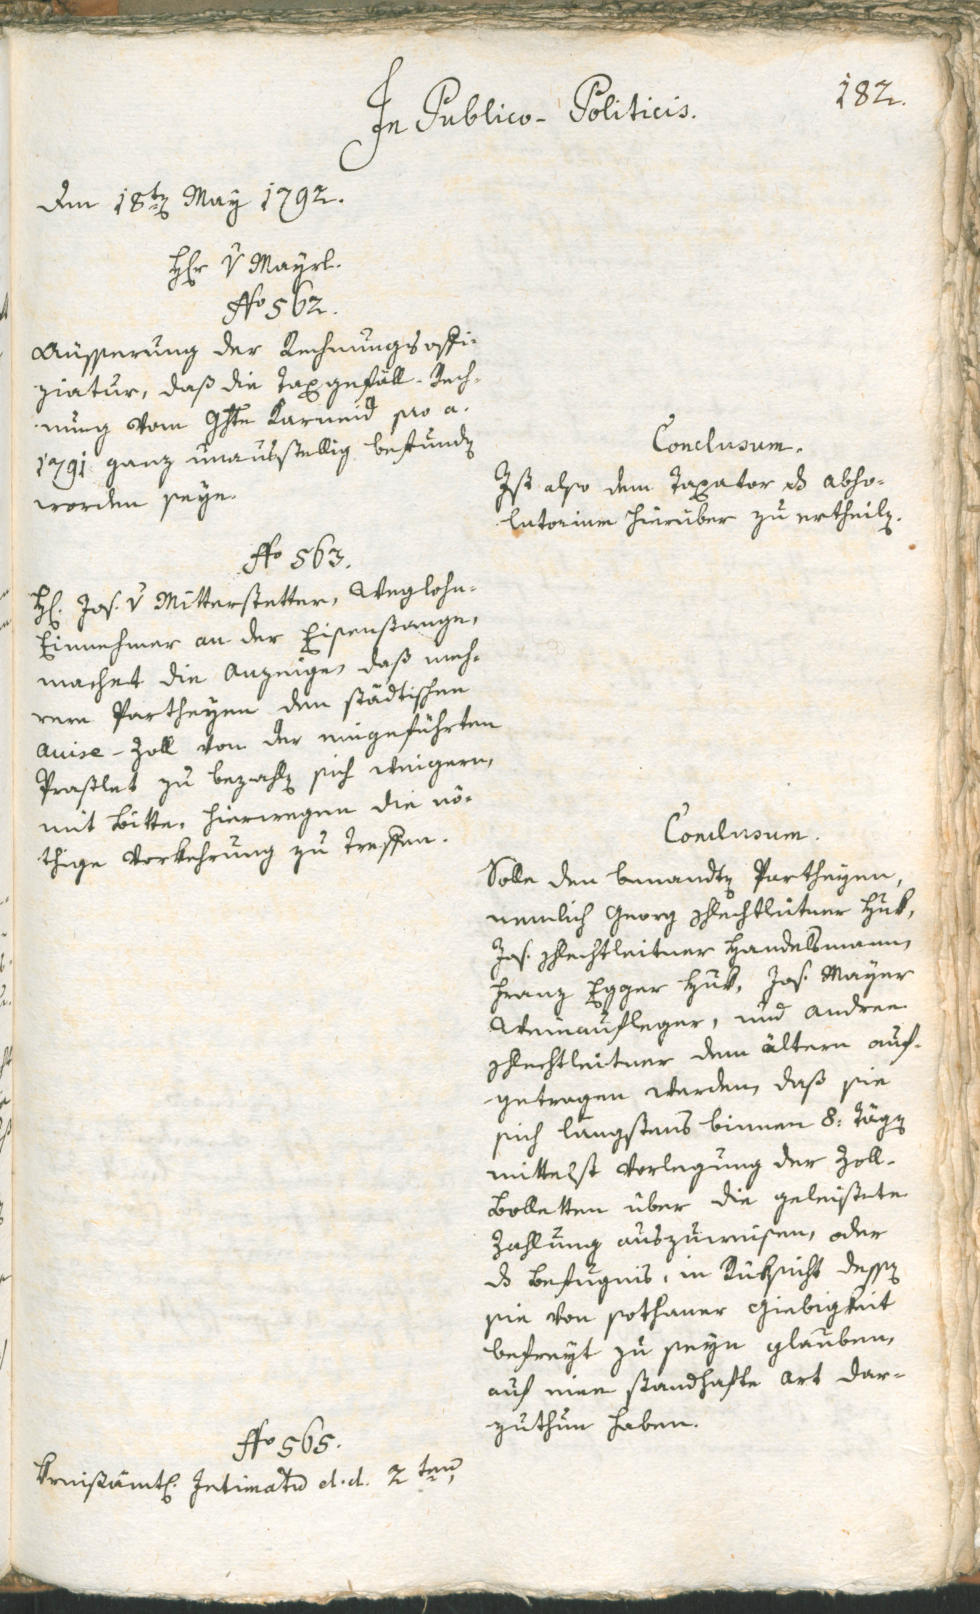 182.
In Publico-Politicis.
Den 18ten May 1792.
Hr v Mayrl.
No 562.
Äusserung der Rechnungsoffi-
ziatur, daß die Taxgefäll-Rech-
nung vom Ghte Karneid pro a.
1791 ganz unausstellig befunden
worden seye.
Conclusum.
Ist also dem Taxator ds abso-
lutorium hierüber zu ertheilen.
No 563.
H. Jos. v Mitterstetter, Weglohn-
Einnehmer an der Eisenstange,
machet die Anzeige, daß meh-
rere Partheyen den städtischen
avise-Zoll von der eingeführten
Praßlet zu bezahlen sich weigern,
mit Bitte, hierwegen die nö-
thige Vorkehrung zu treffen.
Conclusum.
Solle den benandten Partheyen,
nemlich Georg Schlechtleitner Huk,
Jos. Schlechtleitner Handelsmann,
Franz Egger Huk, Jos. Mayer
Weinaufleger, und Andree
Schlechtleitner dem ältern auf-
getragen werden, daß sie
sich längstens binnen 8: Tägen
mittelst Vorlegung der Zoll-
Bolletten über die geleistete
Zahlung auszuweisen, oder
ds Befugnis, in Rüksicht dessen
sie von sothaner Giebigkeit
befreyt zu seyn glauben,
auf eine standhafte Art dar-
zuthun haben.
No 565.
Kreisämtl. Intimatum d.d. 2ten,